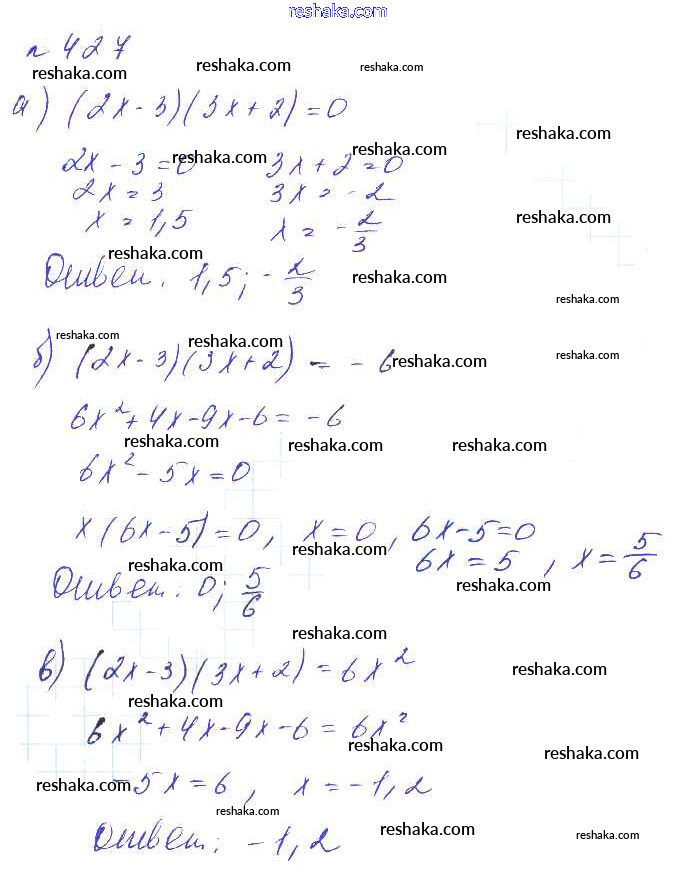 reshaka.com
n 427
reshaka.com reshaka.com reshaka.com
а) (2x - 3)(3x + 2) = 0
reshaka.com
2x - 3 = 0 3x + 2 = 0
reshaka.com reshaka.com
2x = 3 3x = -2
x = 1,5 x = -2/3
reshaka.com
reshaka.com
Ответ: 1,5; -2/3
reshaka.com
reshaka.com
reshaka.com reshaka.com
б) (2x - 3)(3x + 2) = - 6
reshaka.com reshaka.com
6x² + 4x - 9x - 6 = -6
reshaka.com reshaka.com reshaka.com
6x² - 5x = 0
x(6x - 5) = 0, x = 0, 6x - 5 = 0
reshaka.com
6x = 5, x = 5/6
reshaka.com reshaka.com
Ответ: 0; 5/6
reshaka.com
в) (2x - 3)(3x + 2) = 6x²
reshaka.com
reshaka.com
6x² + 4x - 9x - 6 = 6x²
reshaka.com reshaka.com
-5x = 6, x = -1,2
reshaka.com reshaka.com
reshaka.com
Ответ: -1,2
reshaka.com reshaka.com